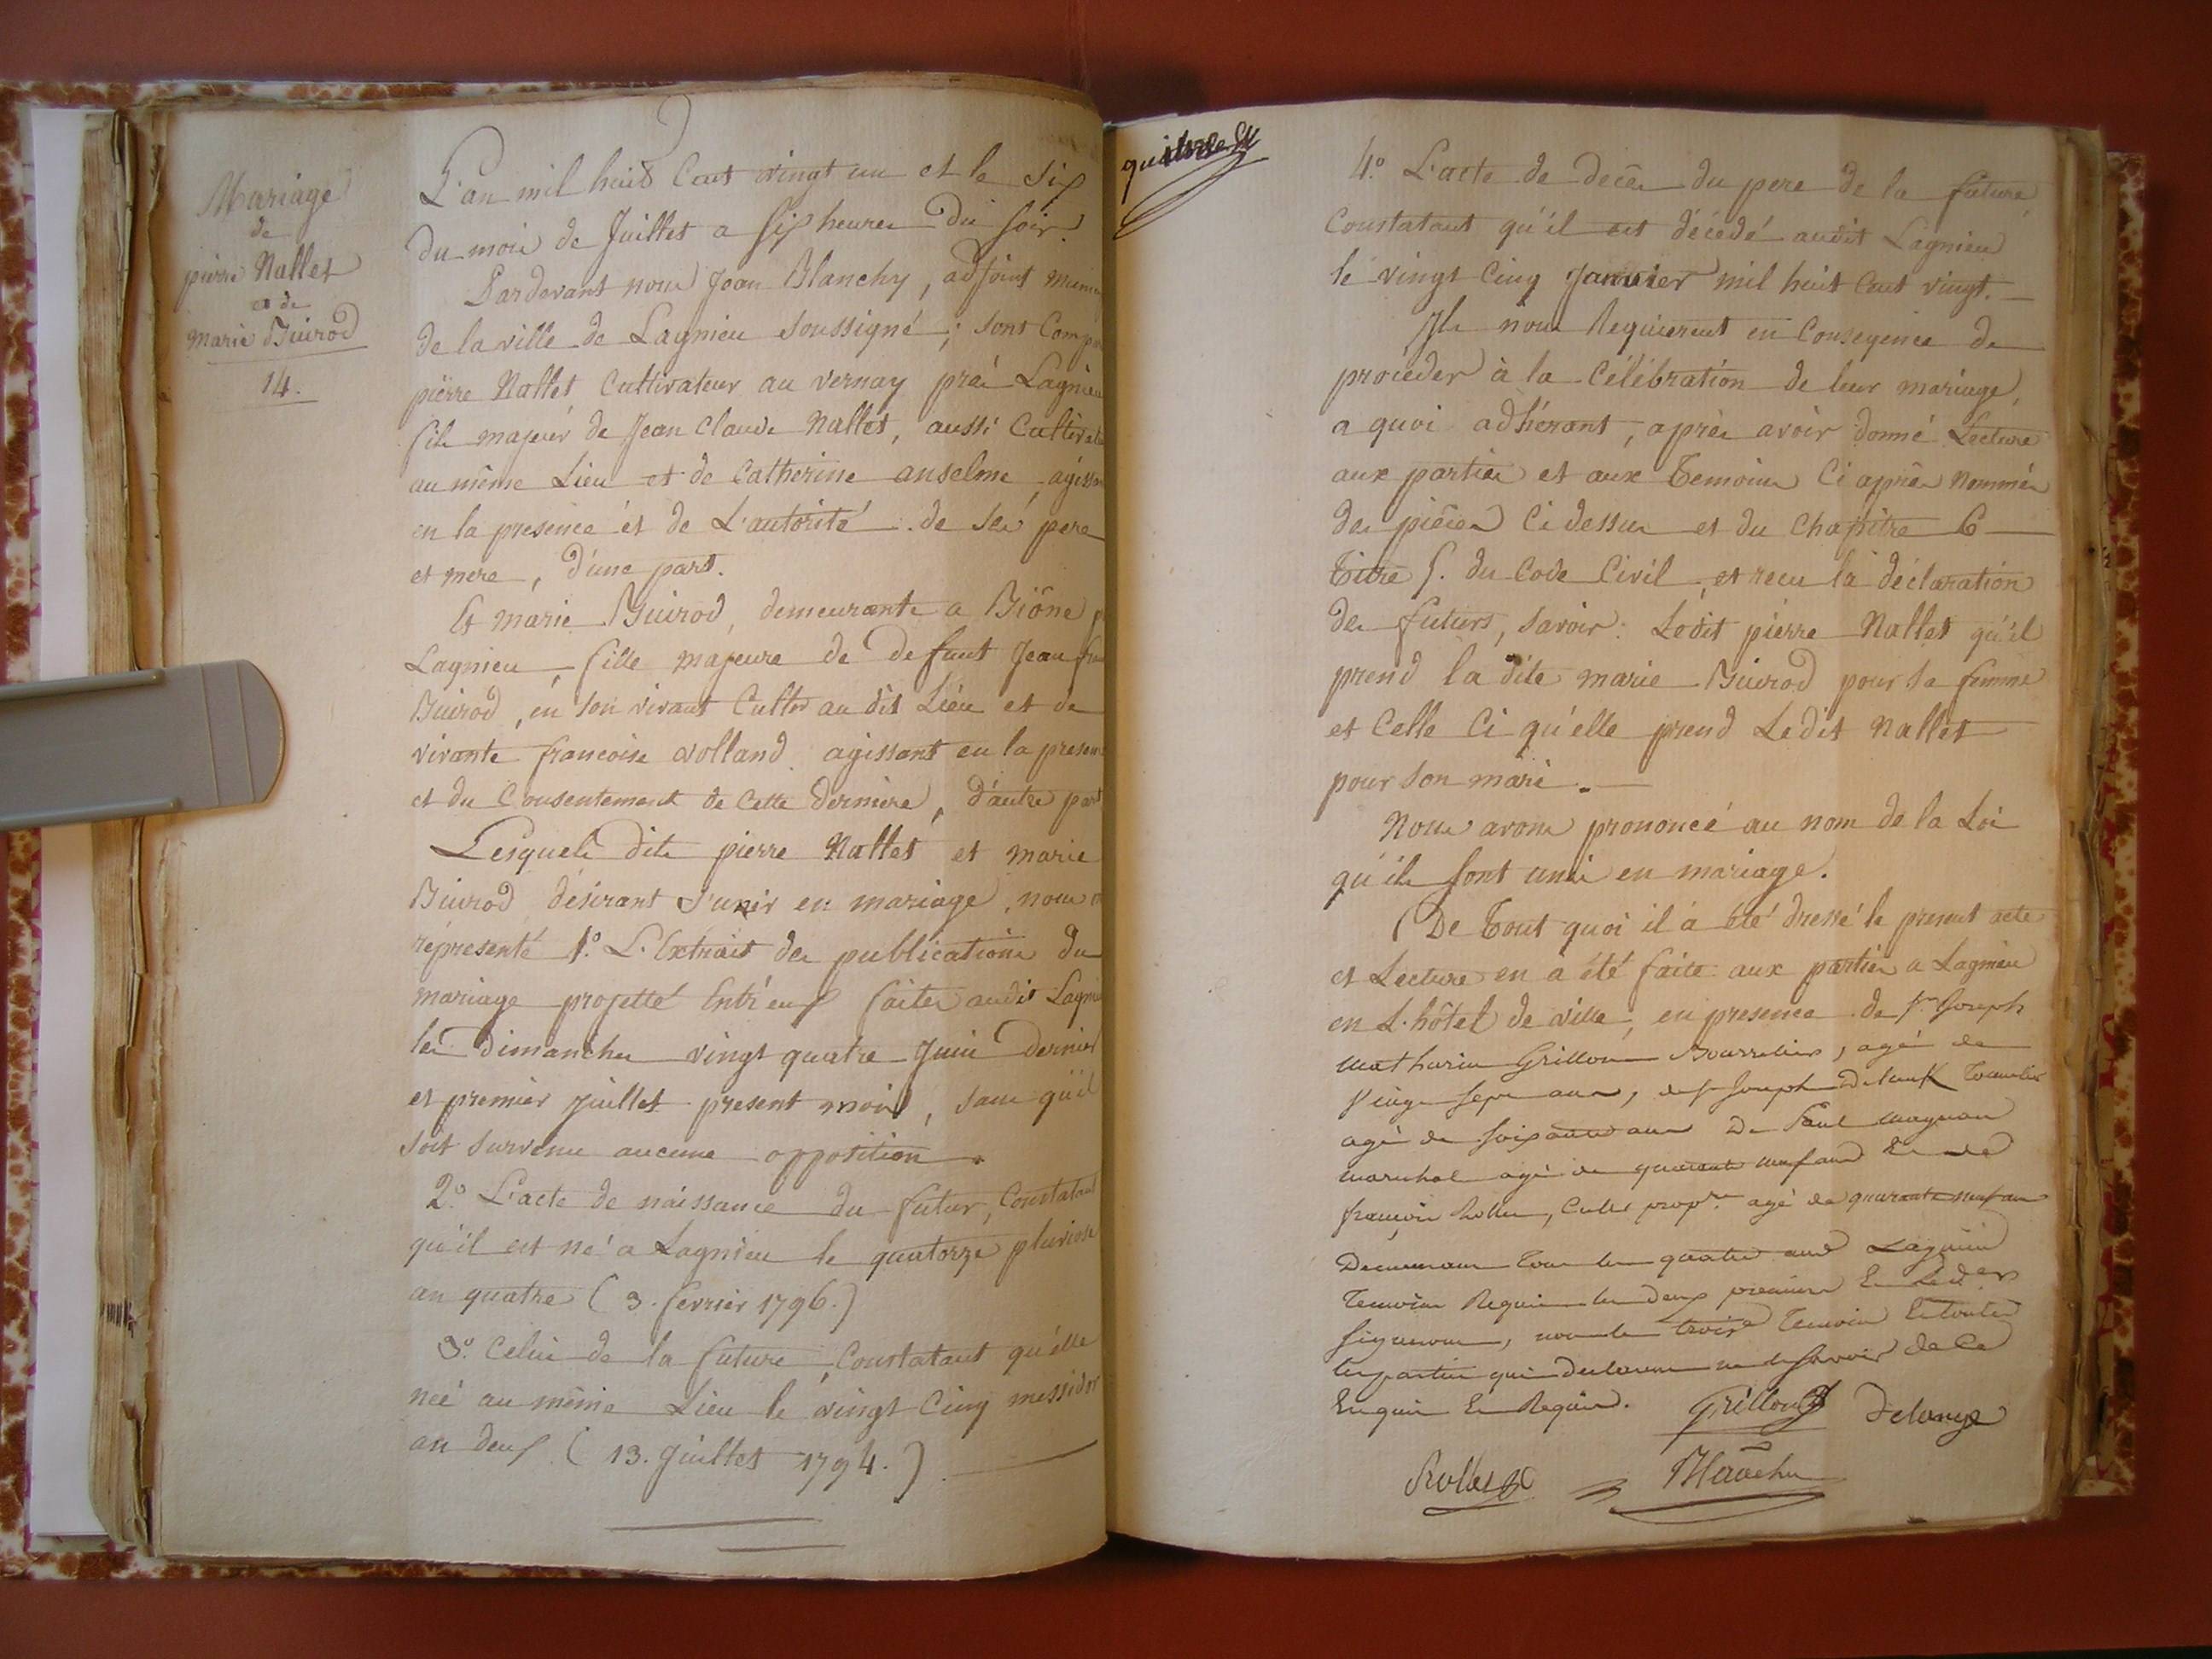 Mariage
de
pierre Nallet
et de
marie Buirod
14.
L'an mil huit Cent vingt un et le Six
du mois de Juillet a Six heures du soir.
Pardevant nous Jean Blanchy, adjoint
de la ville de Lagnieu soussigné; sont
pierre Nallet Cultivateur au vernay près
fils majeur de Jean Claude Nallet, aussi
au même Lieu et de Catherine anselme
en la presence et de L'autorité de ses pere
et mere, d'une part.
Et marie Buirod, demeurante a Biône
Lagnieu, fille majeure de defunt Jean
Buirod, en son vivant Cultr au dit Lieu et de
vivante francoise volland agissant en la
et du Consentement de Cette derniere, d'autre part
Lesquels dits pierre Nallet et marie
Buirod désirant s'unir en mariage, nous
représenté 1.º L'Extrait des publications du
mariage projetté Entr'eux faites audit
les dimanches vingt quatre Juin dernier
et premier juillet present mois, sans qu'il
soit survenu aucune opposition.
2.º L'acte de naissance du futur, Constatant
qu'il est né a Lagnieu le quatorze pluviose
an quatre (3. fevrier 1796.)
3.º Celui de la future, Constatant qu'elle
neé au même Lieu le vingt Cinq messidor
an deux (13. Juillet 1794.)
quatorze
4.º L'acte de decès du pere de la future
Constatant qu'il est décédé audit Lagnieu
le vingt Cinq Janvier mil huit Cent vingt.
Ils nous Requierent en Conseqence de
procéder à la Célébration de leur mariage,
a quoi adhérant, après avoir donné Lecture
aux parties et aux Temoins Ci après nommés
des pièces Ci dessus et du Chapitre 6
Titre 5. du Code Civil, et recu la déclaration
des futurs, savoir: Ledit pierre Nallet qu'il
prend la dite marie Buirod pour sa femme
et Celle Ci qu'elle prend Ledit Nallet
pour son mari.
Nous avons prononcé au nom de la Loi
qu'ils sont unis en mariage.
De Tout quoi il a été dressé le present acte
et Lecture en a été faite aux parties a Lagnieu
en L'hôtel de ville, en presence de Sr Joseph
Mathurin Grillon Bourrelier, agé de
Vingt sept ans, de Sr Joseph Tonnelier
agé de soixante ans De Paul magnan
marechal agé de quarante neuf ans Et de
françois Rollet, Cultr propre agé de quarante neuf ans
Demeurant tous les quatre audit Lagnieu
Temoins Requis les deux premiers Et Le der
signeront, non le troise Temoin Et toutes
les parties qui declarent ne le savoir de Ce
Enquis Et Requis.
Grillon
Delange
Rollet
Blanchy